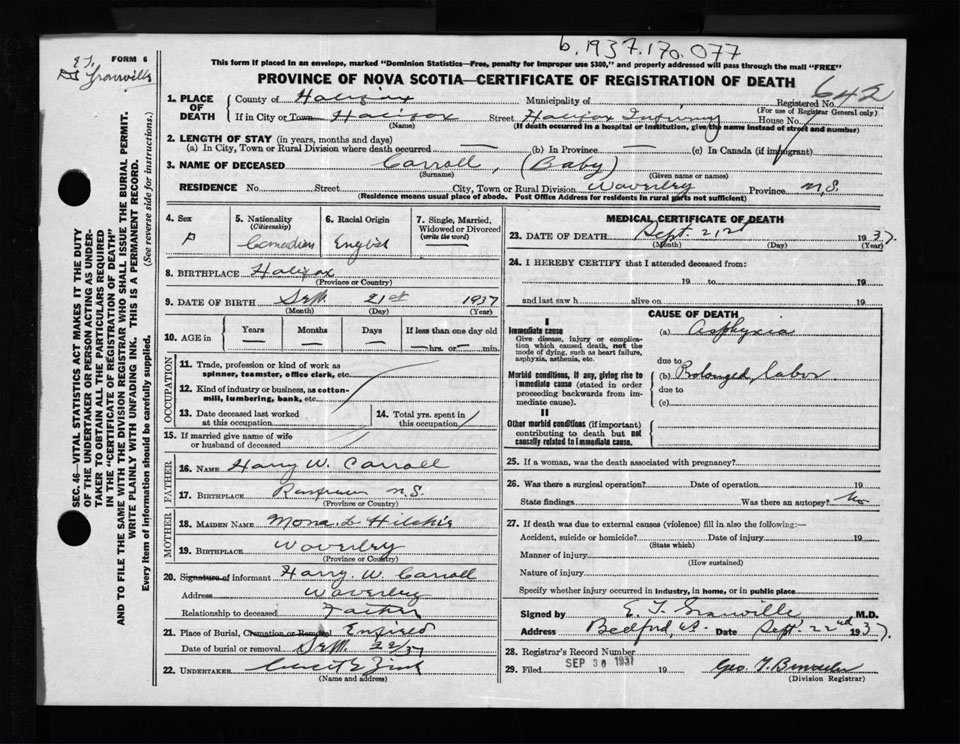 b. 1937.170.077
E.T. Granville
FORM 6
This form if placed in an envelope, marked "Dominion Statistics—Free, penalty for improper use $300," and properly addressed will pass through the mail "FREE"
PROVINCE OF NOVA SCOTIA—CERTIFICATE OF REGISTRATION OF DEATH
642
1. PLACE OF DEATH
County of Halifax Municipality of Registered No.
(For use of Registrar General only)
If in City or Town Halifax Street Halifax Infirmary House No.
(Name) (If death occurred in a hospital or institution, give the name instead of street and number)
2. LENGTH OF STAY (in years, months and days)
(a) In City, Town or Rural Division where death occurred — (b) In Province — (c) In Canada (if immigrant)
3. NAME OF DECEASED Carroll, (Baby)
(Surname) (Given name or names)
RESIDENCE No. Street City, Town or Rural Division Waverley Province N.S.
(Residence means usual place of abode. Post Office Address for residents in rural parts not sufficient)
4. Sex
5. Nationality (Citizenship) Canadian
6. Racial Origin English
7. Single, Married, Widowed or Divorced (write the word) —
8. BIRTHPLACE Halifax
(Province or Country)
9. DATE OF BIRTH Sept. 21st 1937
(Month) (Day) (Year)
10. AGE in Years — Months — Days — If less than one day old — hrs. or — min.
OCCUPATION
11. Trade, profession or kind of work as spinner, teamster, office clerk, etc.
12. Kind of industry or business, as cotton-mill, lumbering, bank, etc.
13. Date deceased last worked at this occupation
14. Total yrs. spent in this occupation
15. If married give name of wife or husband of deceased
FATHER
16. NAME Harry W. Carroll
17. BIRTHPLACE Renfrew N.S.
(Province or Country)
MOTHER
18. MAIDEN NAME Mona L.
19. BIRTHPLACE Waverley
(Province or Country)
20. Signature of informant Harry. W. Carroll
Address Waverley
Relationship to deceased Father
21. Place of Burial, Cremation or Removal Enfield
Date of burial or removal Sept. 22/37
22. UNDERTAKER
(Name and address)
MEDICAL CERTIFICATE OF DEATH
23. DATE OF DEATH Sept. 21st 1937.
(Month) (Day) (Year)
24. I HEREBY CERTIFY that I attended deceased from:
19 to 19
and last saw h alive on 19
CAUSE OF DEATH
I
Immediate cause
Give disease, injury or complication which caused death, not the mode of dying, such as heart failure, asphyxia, asthenia, etc.
(a) Asphyxia
due to
Morbid conditions, if any, giving rise to immediate cause (stated in order proceeding backwards from immediate cause).
(b) Prolonged labor
due to
(c)
II
Other morbid conditions (if important) contributing to death but not causally related to immediate cause.
25. If a woman, was the death associated with pregnancy?
26. Was there a surgical operation? Date of operation 19
State findings Was there an autopsy? No
27. If death was due to external causes (violence) fill in also the following:—
Accident, suicide or homicide? Date of injury 19
(State which)
Manner of injury
(How sustained)
Nature of injury
Specify whether injury occurred in industry, in home, or in public place
Signed by E. T. Granville M.D.
Address Bedford, N.S. Date Sept. 22nd 1937.
28. Registrar's Record Number
29. Filed SEP 30 1937 19
(Division Registrar)
SEC. 46—VITAL STATISTICS ACT MAKES IT THE DUTY
OF THE UNDERTAKER OR PERSON ACTING AS UNDER-
TAKER TO OBTAIN ALL THE PARTICULARS REQUIRED
IN THE "CERTIFICATE OF REGISTRATION OF DEATH"
AND TO FILE THE SAME WITH THE DIVISION REGISTRAR WHO SHALL ISSUE THE BURIAL PERMIT.
WRITE PLAINLY WITH UNFADING INK. THIS IS A PERMANENT RECORD.
Every item of information should be carefully supplied. (See reverse side for instructions.)